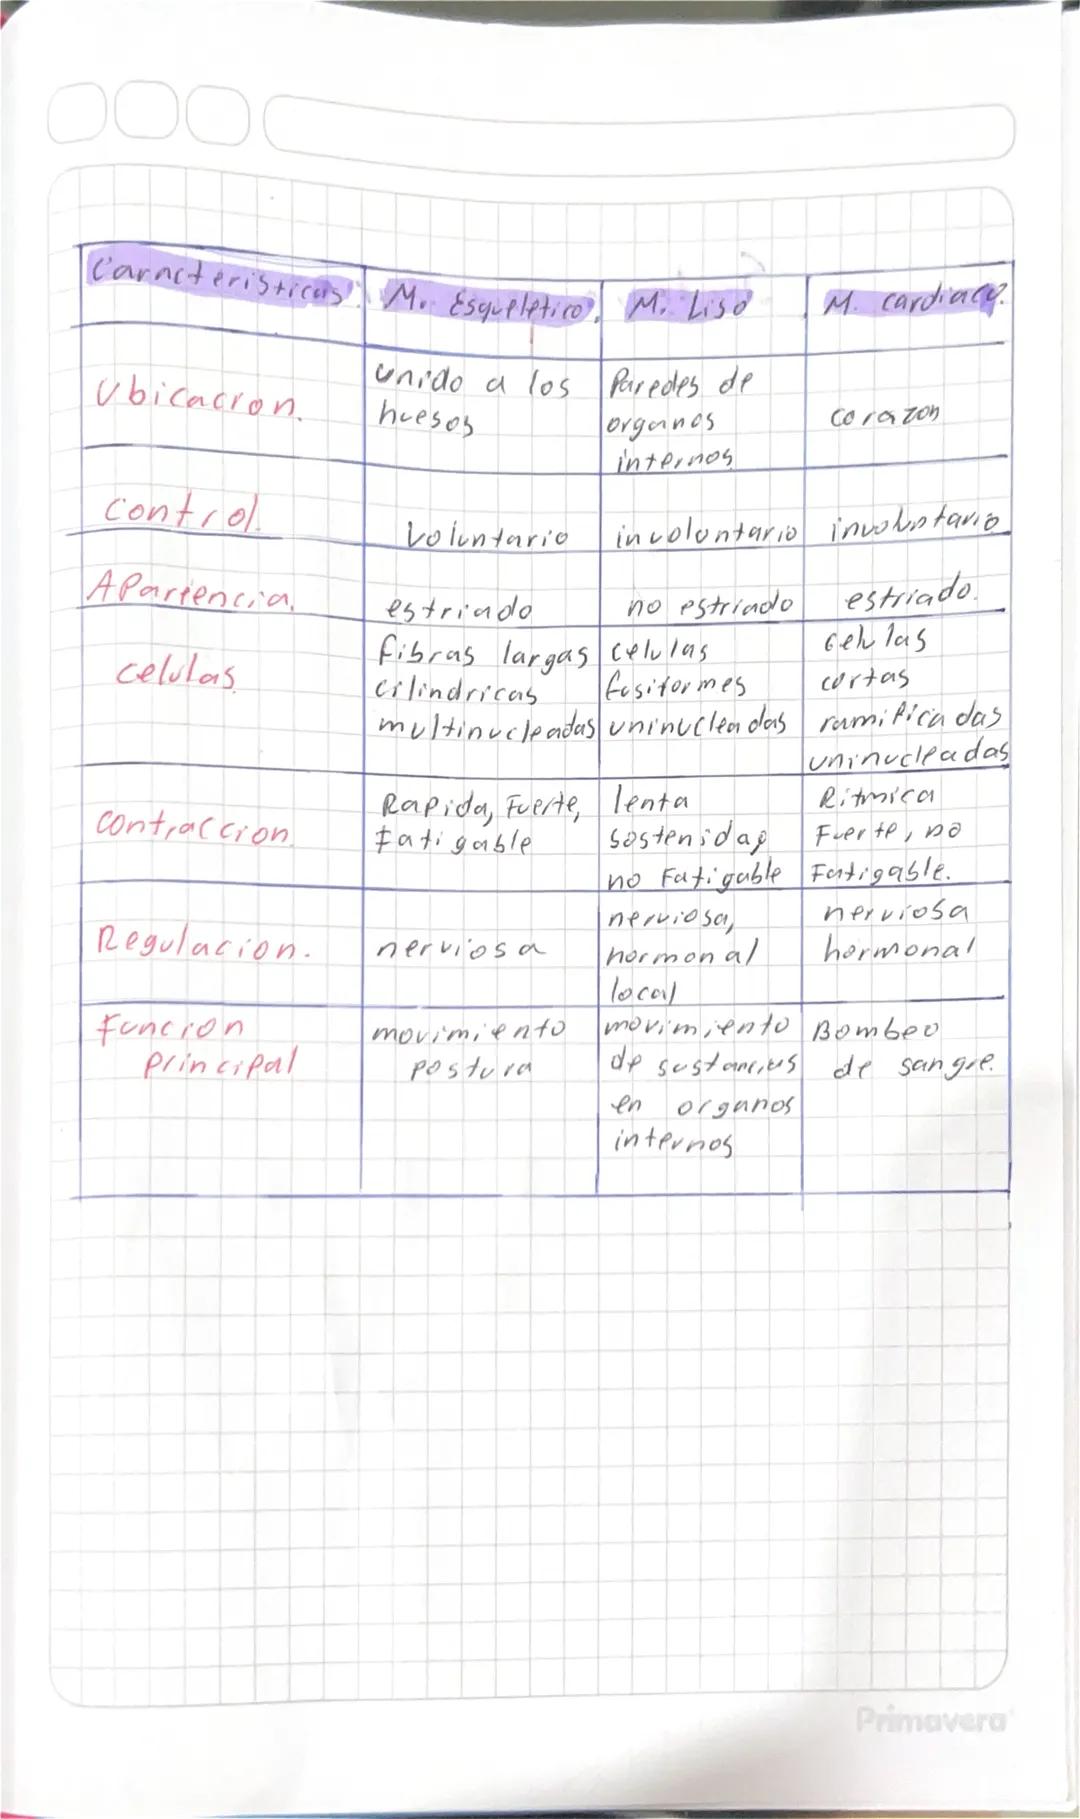 Caracteristicas. M. Esqueletico. M. Liso M. cardiaco.
Ubicacion. unido a los huesos Paredes de organos internos corazon
control. Voluntario involontario involuntario
Apariencia. estriado no estriado estriado.
celulas fibras largas cilindricas multinucleadas celulas fusiformes uninucleadas celulas cortas ramificadas uninucleadas
contraccion Rapida, Fuerte, Fatigable lenta sostenida, no Fatigable Ritmica Fuerte, no Fatigable.
Regulacion. nerviosa nerviosa, hormonal local nerviosa hormonal
Funcion principal movimiento postura movimiento de sustancias en organos internos Bombeo de sangre.
Primavera